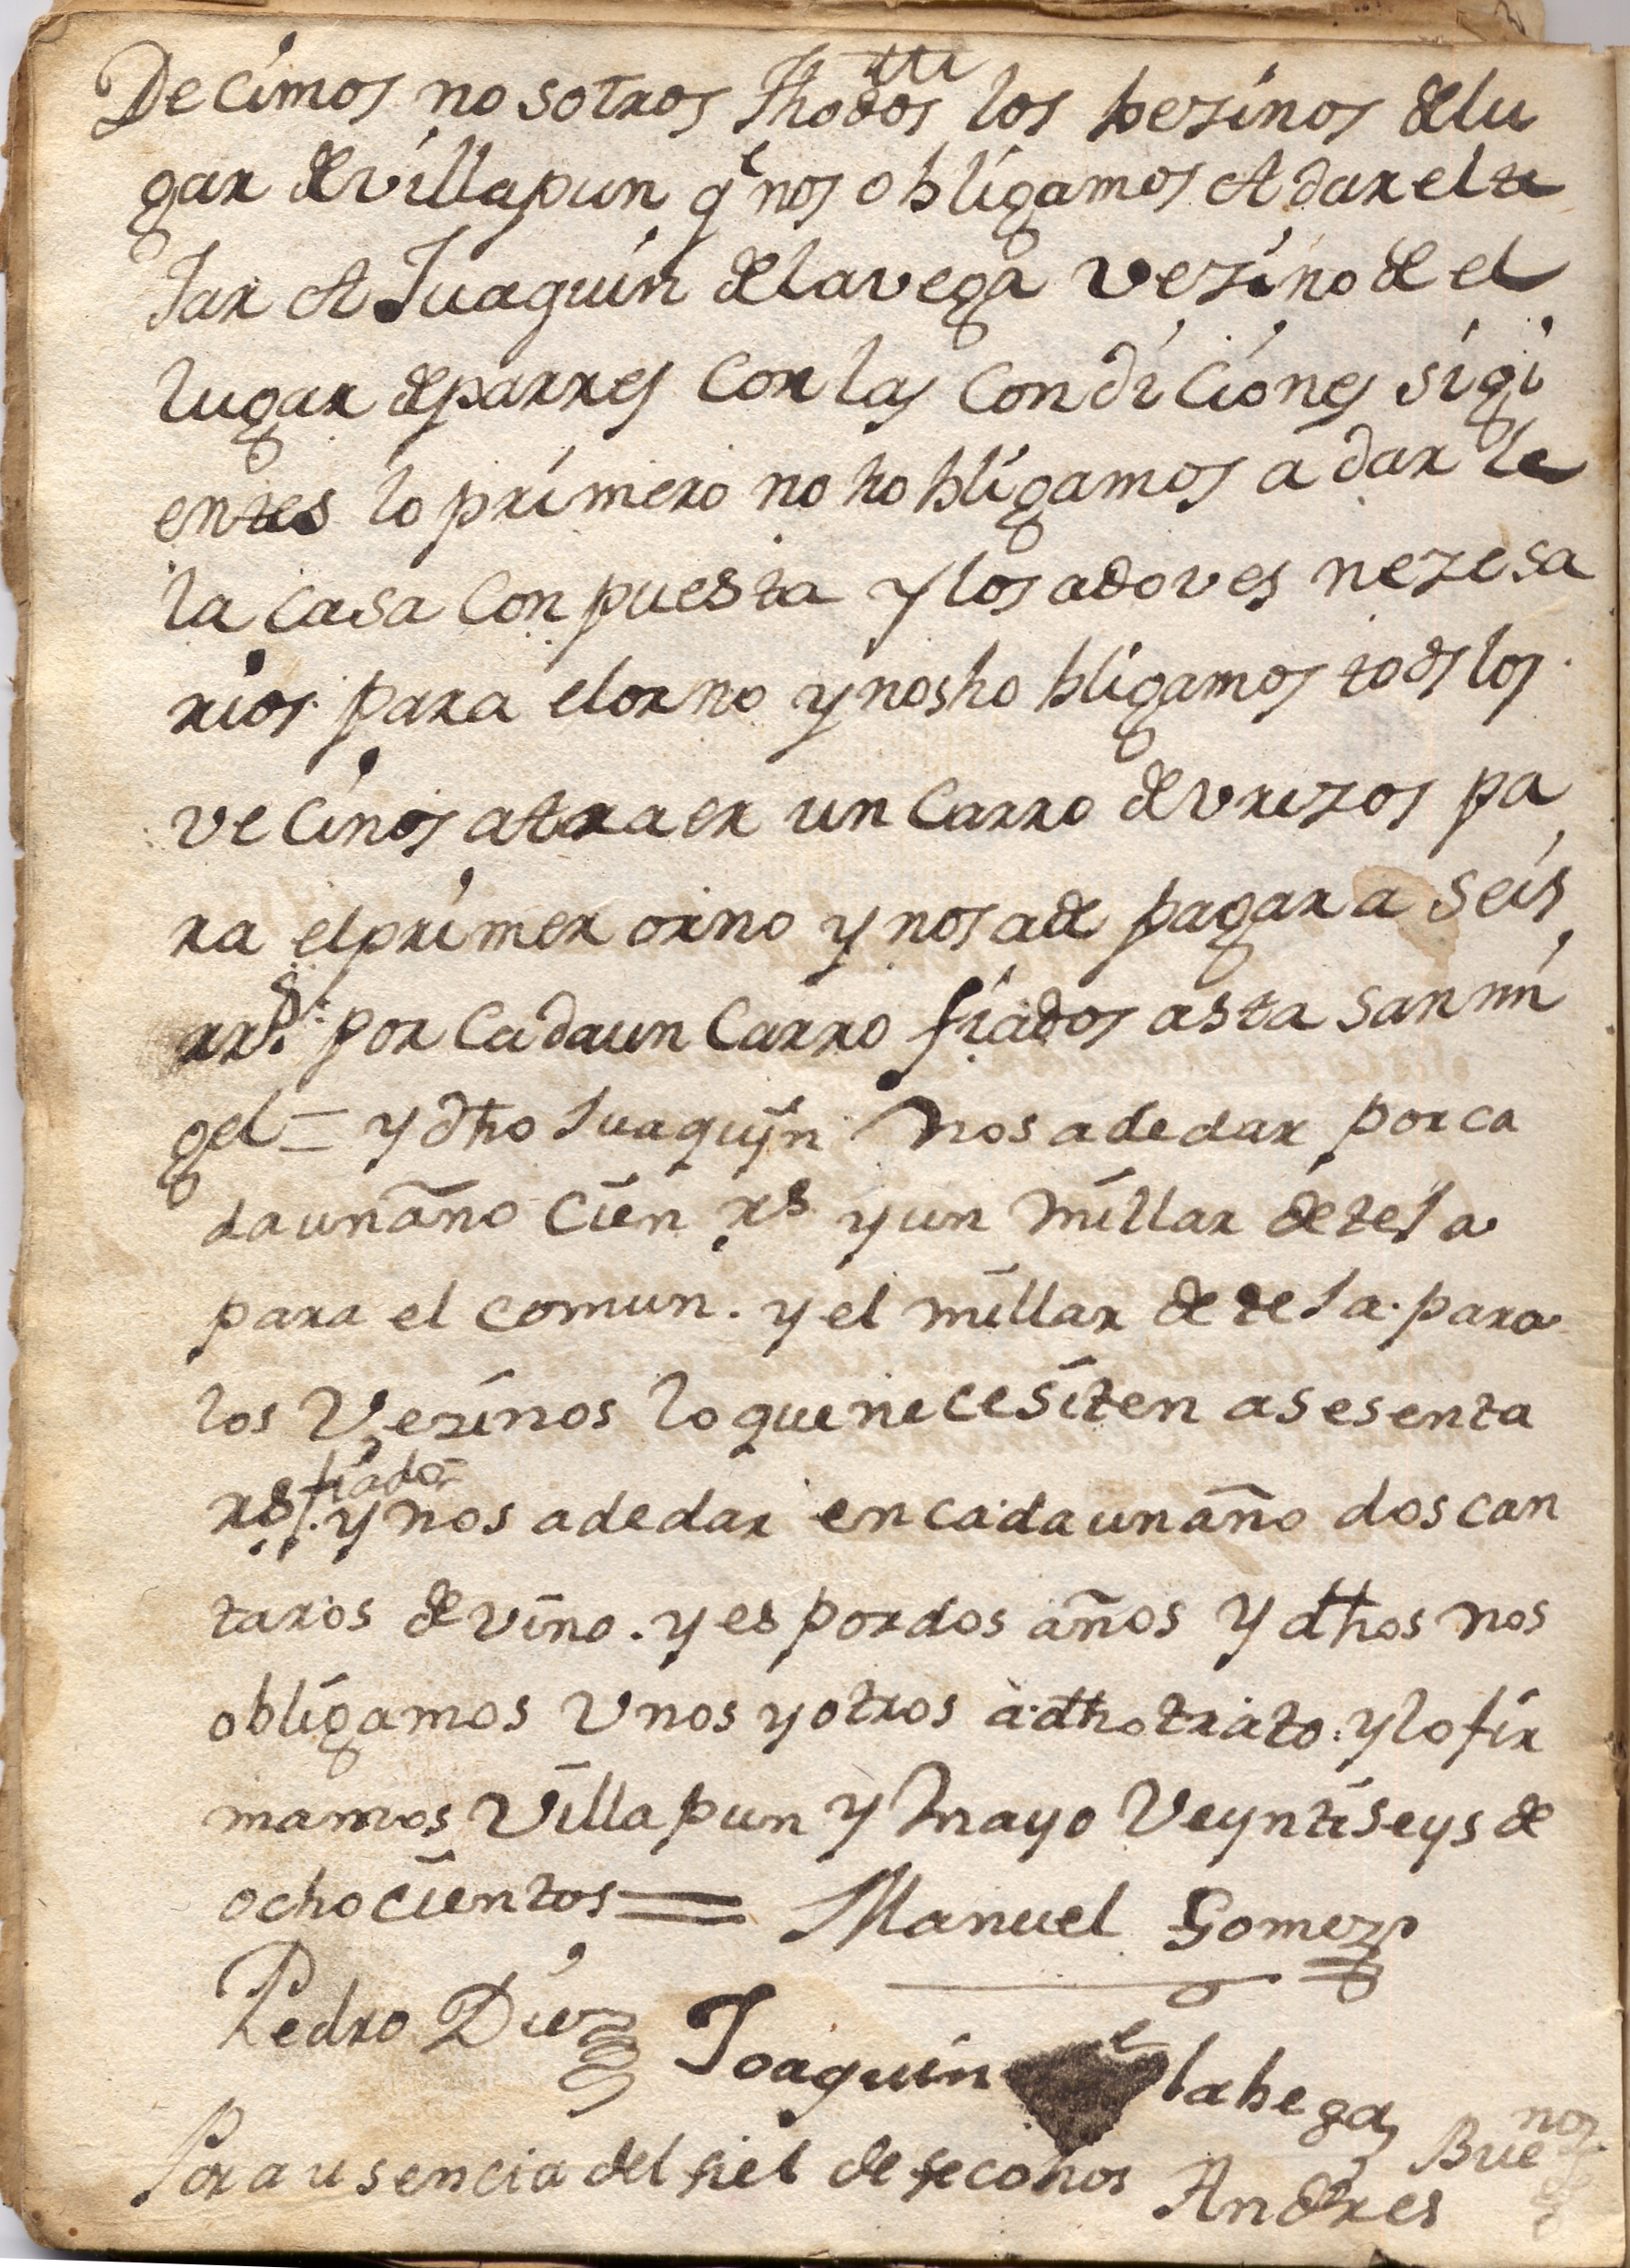 Decimos nosotros thodos los bezinos del lu
gar de villapun q.e nos obligamos A dar el te
Jar A Juaquin de la vega vezino de el
lugar de parres con las condiciones sigi
entes lo primero no hobligamos a dar le
la casa conpuesta y los adoves nezesa
rios para el orno y nos hobligamos todos los
vecinos a traer un carro de vrezos pa
ra el primer orno y nos a de pagar a seis
rr.s por cada un carro fiados asta san mi
gel = y dho Juaquyn nos a de dar por ca
da un año cien rs y un millar de teJa
para el comun. y el millar de teJa. para
los Vezinos lo que necesiten a sesenta
fiado
rs. y nos a de dar en cada un año dos can
taros de vino. y es por dos años y dhos nos
obligamos Vnos y otros a dho trato. y lo fir
mamos Villapun y Mayo Veyntiseys de
ochocientos = Manuel Gomez
Pedro Diez Joaquin de la bega
Por ausencia del fiel de fecohos Andres Bueno